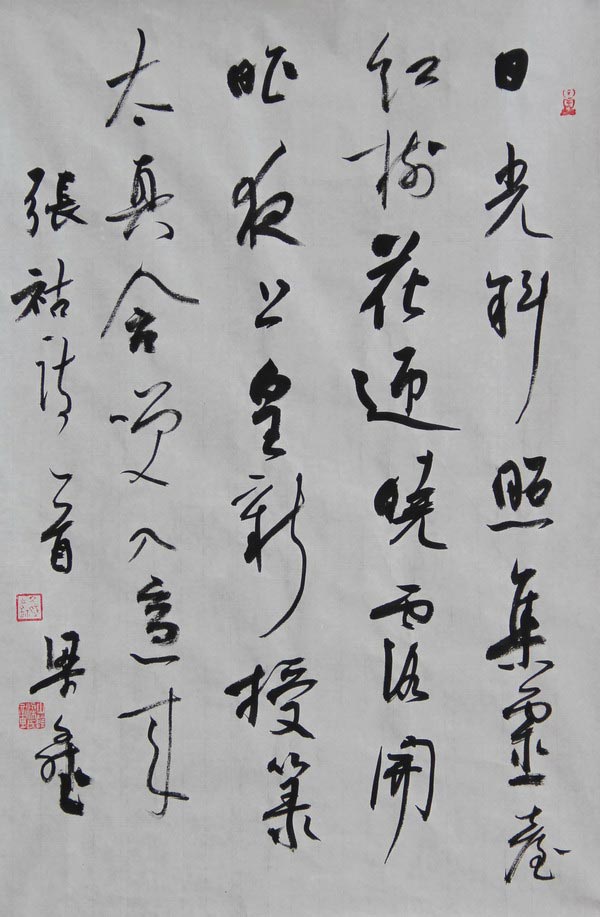 日光斜照集靈臺
紅樹花迎曉露開
昨夜上皇新授籙
太真含咲入簾來
張祜詩一首